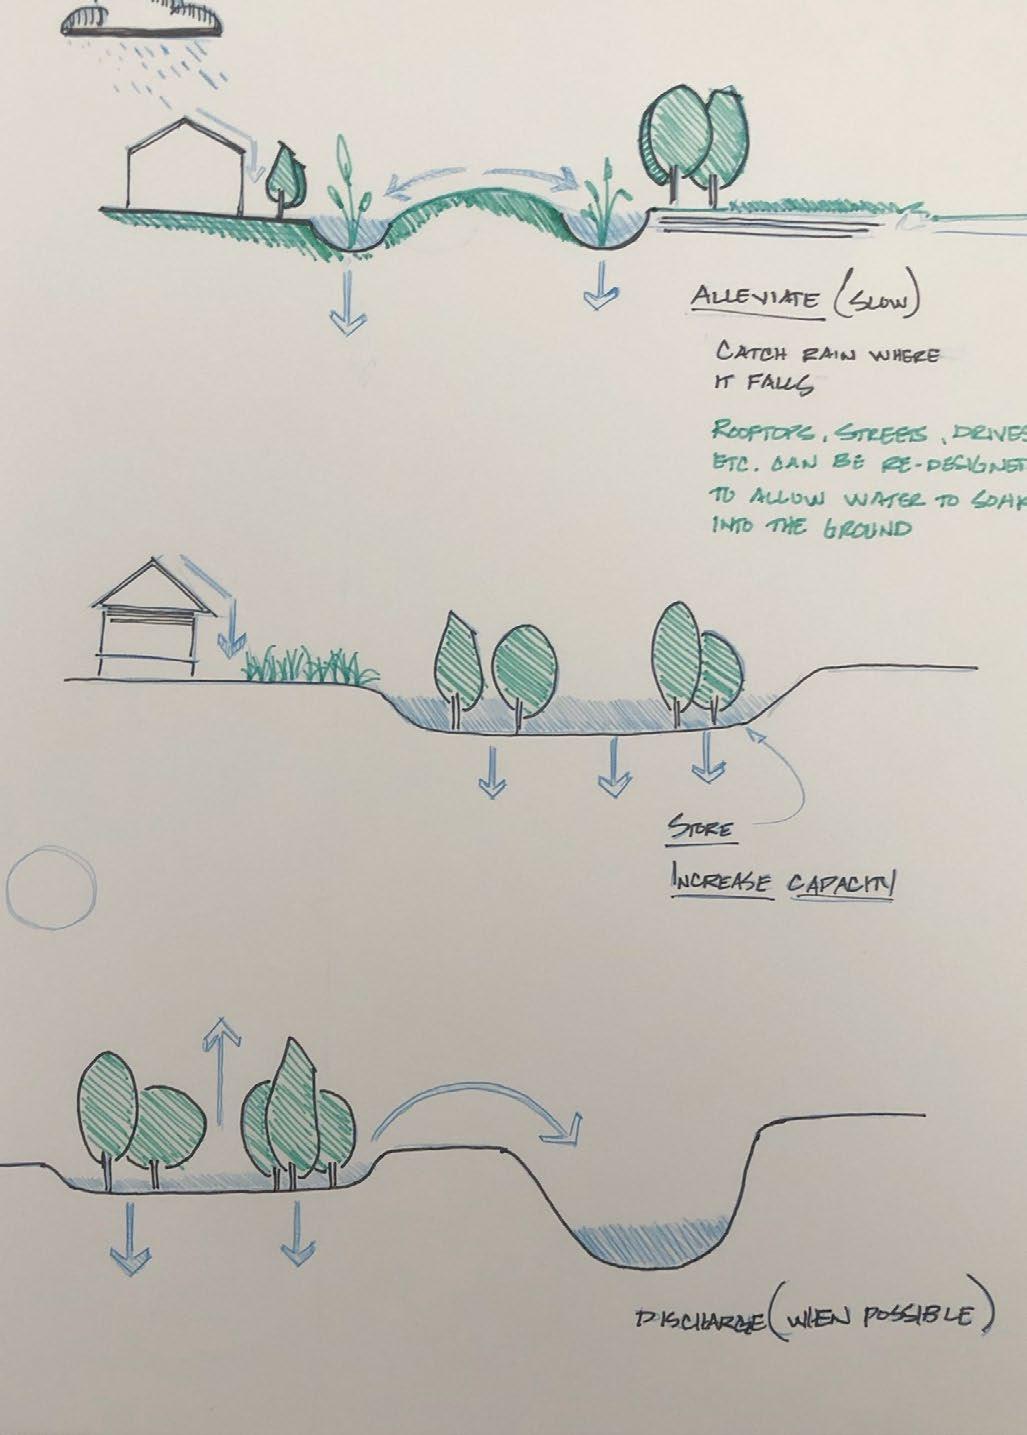 ALLEVIATE (SLOW)
CATCH RAIN WHERE
IT FALLS
ROOFTOPS, STREETS, DRIVES
ETC. CAN BE RE-DESIGNED
TO ALLOW WATER TO SOAK
INTO THE GROUND
STORE
INCREASE CAPACITY
DISCHARGE (WHEN POSSIBLE)